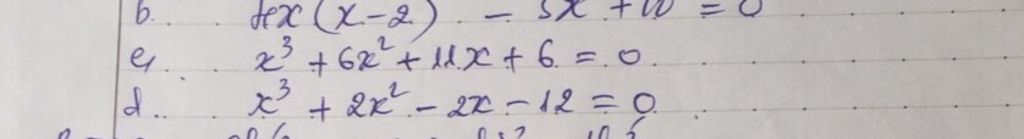 b. x(x-2) - 5x + 10 = 0
c. x³ + 6x² + 11x + 6 = 0
d. x³ + 2x² - 2x - 12 = 0